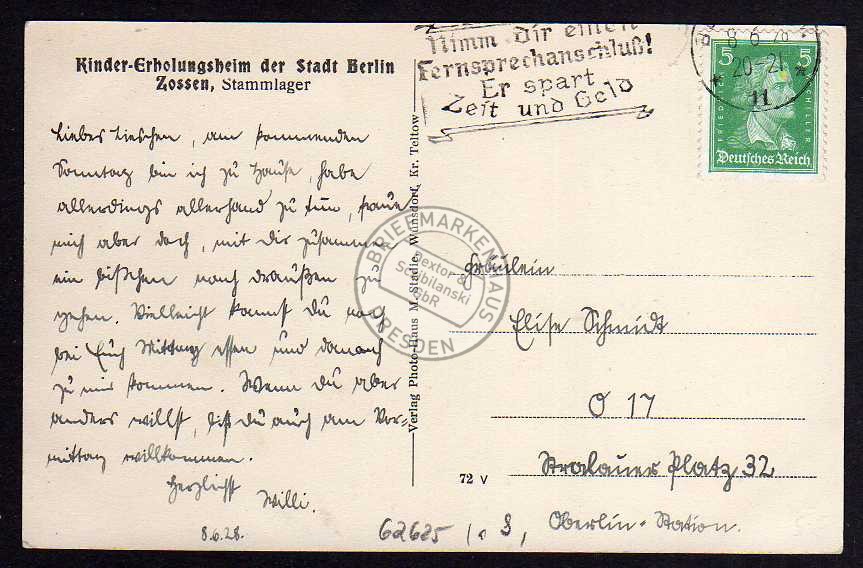 Kinder-Erholungsheim der Stadt Berlin
Zossen, Stammlager
Liebes Lieschen, am kommenden
Sonntag bin ich zu Hause, habe
allerdings allerhand zu tun, freue
mich aber doch, mit dir zusammen
ein bißchen nach draußen zu
gehen. Vielleicht kannst Du nach
bei Euch Mittag essen und danach
zu mir kommen. Wenn Du aber
anders willst, bist Du auch am Vor-
mittag willkommen.
Herzlichst
Willi.
8.6.28.
Verlag Photo-Haus M. Stadie, Wünsdorf, Kr. Teltow
Nimm dir einen
Fernsprechanschluß!
Er spart
Zeit und Geld
8 6 28
* 20-21 *
11
5 5
FRIEDRICH SCHILLER
Deutsches Reich
Fräulein
Elise Schmidt
O 17
Stralauer Platz 32
Oberlin-Station.
72 V
62625
BRIEFMARKENHAUS
Dextor &
Scibilanski
GbR
DRESDEN